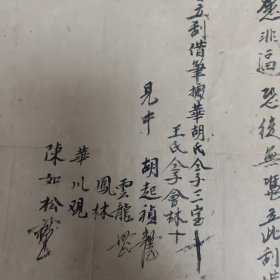 愿非逼恐後無憑立此刮
立刮借筆拇華胡氏仝子三宝十
王氏仝子會林十
見中 胡起禎
雲龍
鳳林
華川观
陳如松